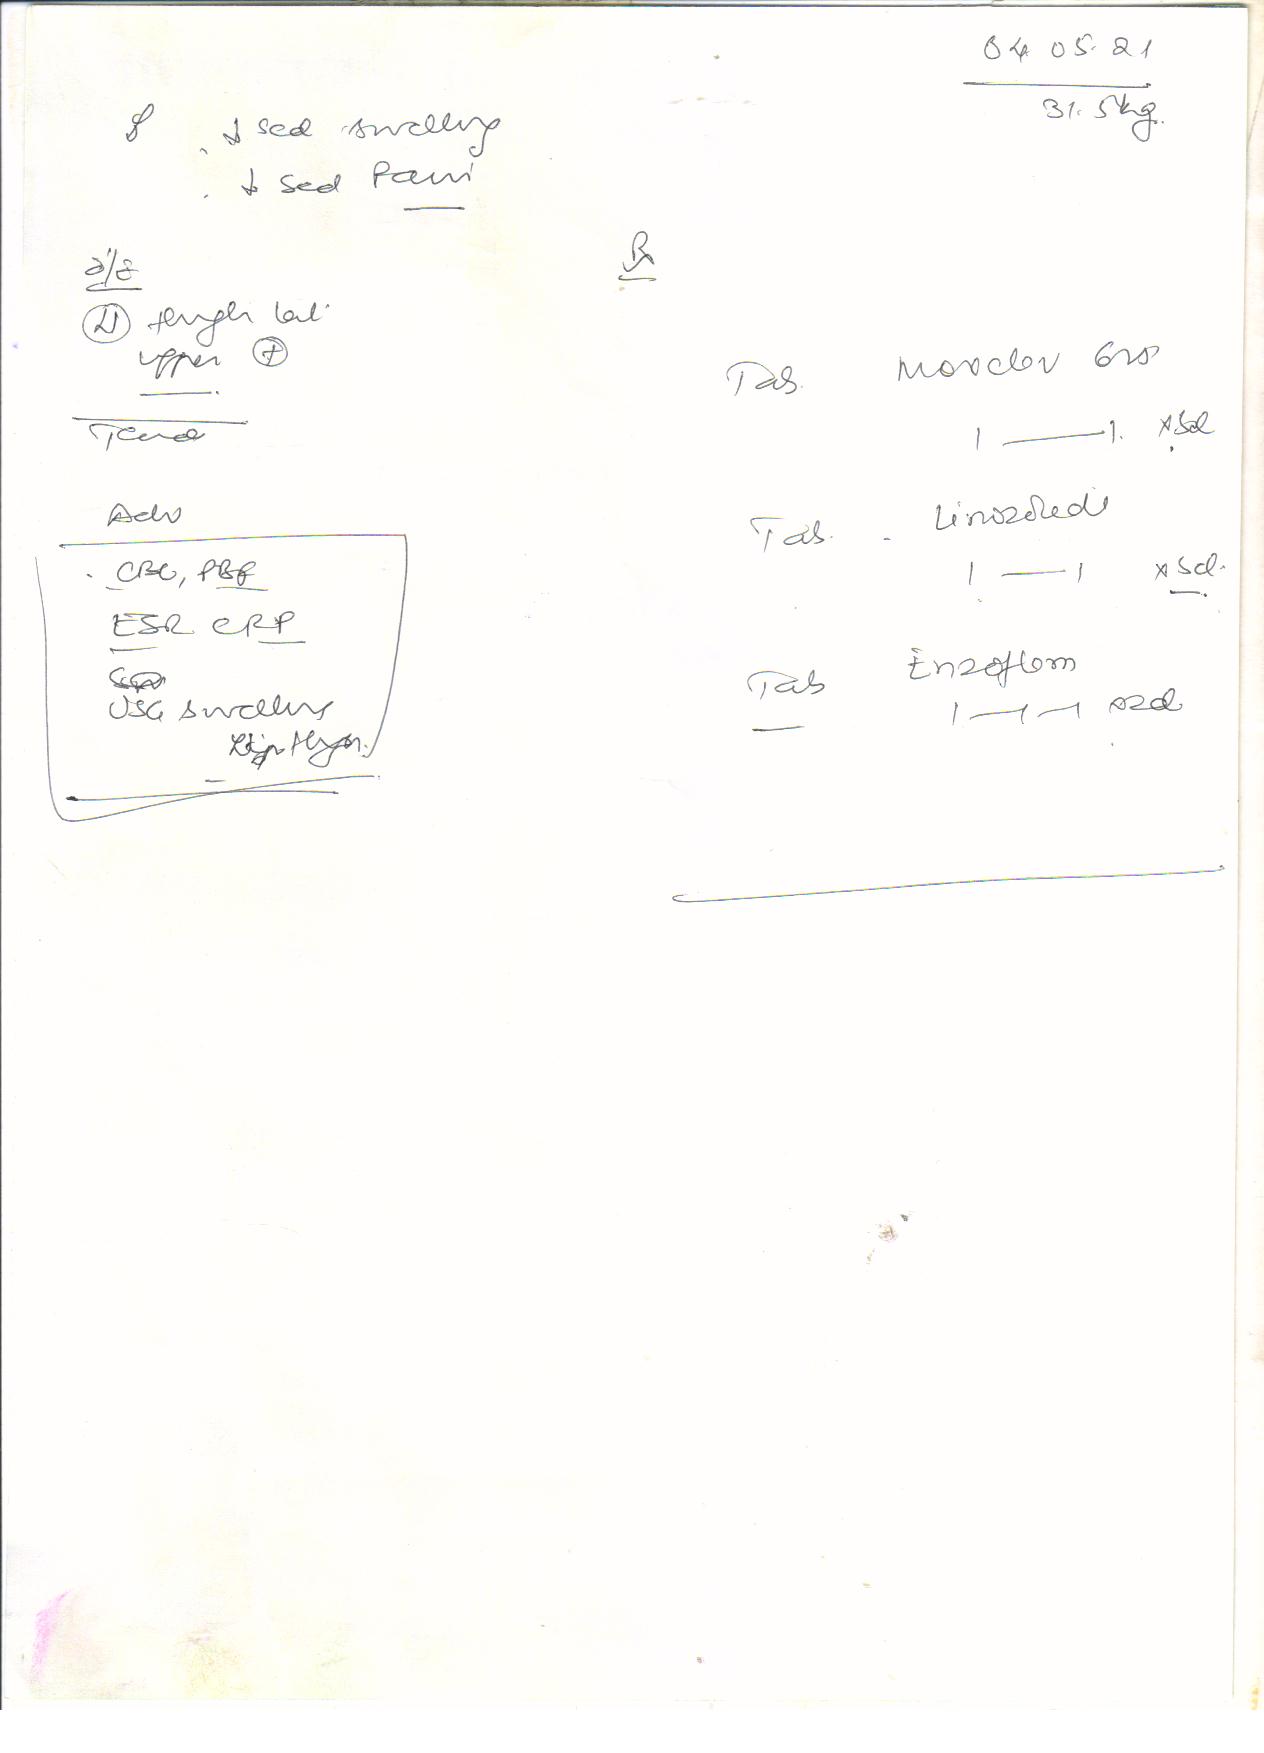 04 05.21
31.5kg.
↓ sed swelling
↓ sed Pain
Rx
O/E
(L) thigh lat.
upper (+)
Adv
CBC, PBF
ESR CRP
USG swelling
thigh.
Tab. Moxclav 625
1 — 1. x 5d
Tab. Linozolid
1 — 1 x 5d.
Tab Enzoflam
1 — 1 — 1 x 2d